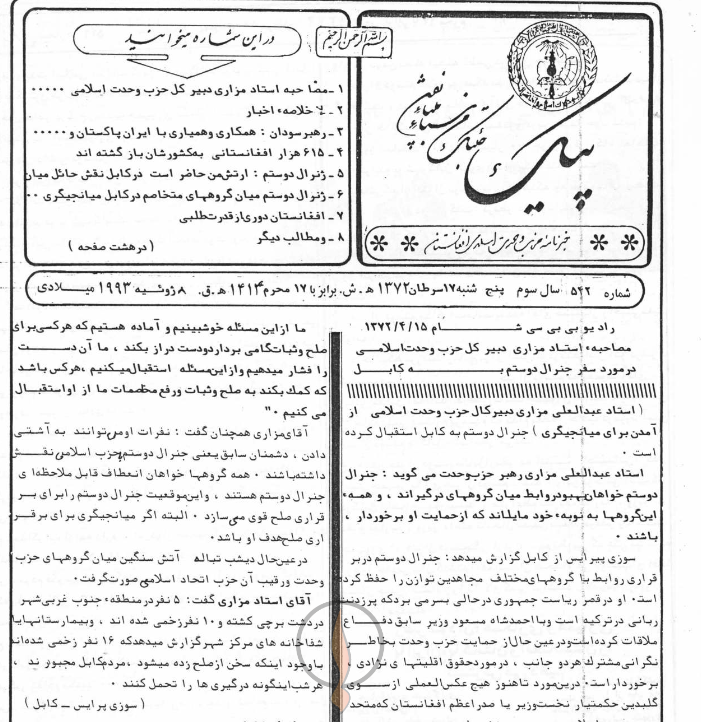 بسم الله الرحمن الرحیم
پیک
خبرنامه حزب وحدت اسلامی افغانستان
در این شماره میخوانید
۱ - مصاحبه استاد مزاری دبیر کل حزب وحدت اسلامی ۰۰۰۰۰
۲ - خلاصهء اخبار
۳ - رهبر سودان : همکاری وهمیاری با ایران پاکستان و ۰۰۰۰۰
۴ - ۶۱۵ هزار افغانستانی به‌کشورشان باز گشته اند
۵ - ژنرال دوستم : ارتش‌من حاضر است درکابل نقش حائل میان
۶ - ژنرال دوستم میان گروههای متخاصم درکابل میانجیگری ۰۰
۷ - افغانستان دوری‌ازقدرت‌طلبی
۸ - ومطالب دیگر
( درهشت صفحه )
شماره ۵۴۲ سال سوم پنج شنبه ۱۷سرطان ۱۳۷۲ ه‍ . ش. برابر با ۱۷ محرم ۱۴۱۴ ه‍ .ق. ۸ ژوئیه ۱۹۹۳ میلادی
رادیو بی بی سی شام ۱۳۷۲/۴/۱۵
مصاحبهء استاد مزاری دبیر کل حزب وحدت‌اسلامی
درمورد سفر جنرال دوستم به کابل
( استاد عبدالعلی مزاری دبیرکال حزب وحدت اسلامی از
آمدن برای میانجیگری ) جنرال دوستم به کابل استقبال کرده
است ۰
استاد عبدالعلی مزاری رهبر حزب‌وحدت می گوید : جنرال
دوستم خواهان‌بهبودروابط میان گروههای درگیراند ، و همهء
این‌گروهها به نوبهء خود مایلند که ازحمایت او برخوردار
باشند ۰
سوزی پیرایس از کابل گزارش میدهد: جنرال دوستم دربر
قراری روابط با گروههای‌مختلف مجاهدین توازن را حفظ کرده
است۰ او درقصر ریاست جمهوری درحالی بسرمی بردکه پرزدنت
ربانی درترکیه است وبااحمدشاه مسعود وزیر سابق دفاع
ملاقات کرده‌است‌ودرعین حال‌از حمایت حزب وحدت بخاطر
نگرانی‌مشترك هردو جانب ، درموردحقوق اقلیتها ی نژادی
برخوردار است۰ دراین‌مورد تاهنوز هیچ عکس‌العملی ازسوی
گلبدین حکمتیار نخست‌وزیر یا صدراعظم افغانستان که‌متحد
ما ازاین مسئله خوشبینیم و آماده هستیم که هرکسی‌برای
صلح وثبات‌گامی برداردودست دراز بکند ، ما آن دست
را فشار میدهیم وازاین‌مسئله استقبال‌میکنیم ،هرکس‌باشد
که کمك بکند به صلح وثبات ورفع‌مخاصمات ما از اواستقبال
می کنیم ۰"
آقای‌مزاری همچنان گفت : نفرات اومی‌توانند به آشتی
دادن ، دشمنان سابق‌یعنی جنرال دوستم‌وحزب اسلامی‌نقش
داشته‌باشند ۰ همه گروهها خواهان انعطاف قابل ملاحظه‌ا ی
جنرال دوستم هستند ، واین‌موقعیت جنرال دوستم رابرای بر
قراری صلح قوی می‌سازد ۰ البته اگر میانجیگری برای برقر
اری صلح‌هدف او باشد ۰
درعین‌حال دیشب تبالهء آتش سنگین میان گروههای حزب
وحدت و رقیب آن حزب اتحاد اسلامی صورت‌گرفت۰
آقای استاد مزاری گفت : ۵ نفردرمنطقهء جنوب غربی‌شهر
دردشت برچی کشته و ۱۰ نفرزخمی شده اند ، وبیمارستانهایا
شفاخانه های مرکز شهرگزارش میدهدکه ۱۶ نفر زخمی شده‌اند
باوجود اینکه سخن ازصلح زده میشود ،مردم‌کابل مجبورند ،
هرشب‌اینگونه درگیری ها را تحمل کنند ۰
( سوزی پرایس - کابل )